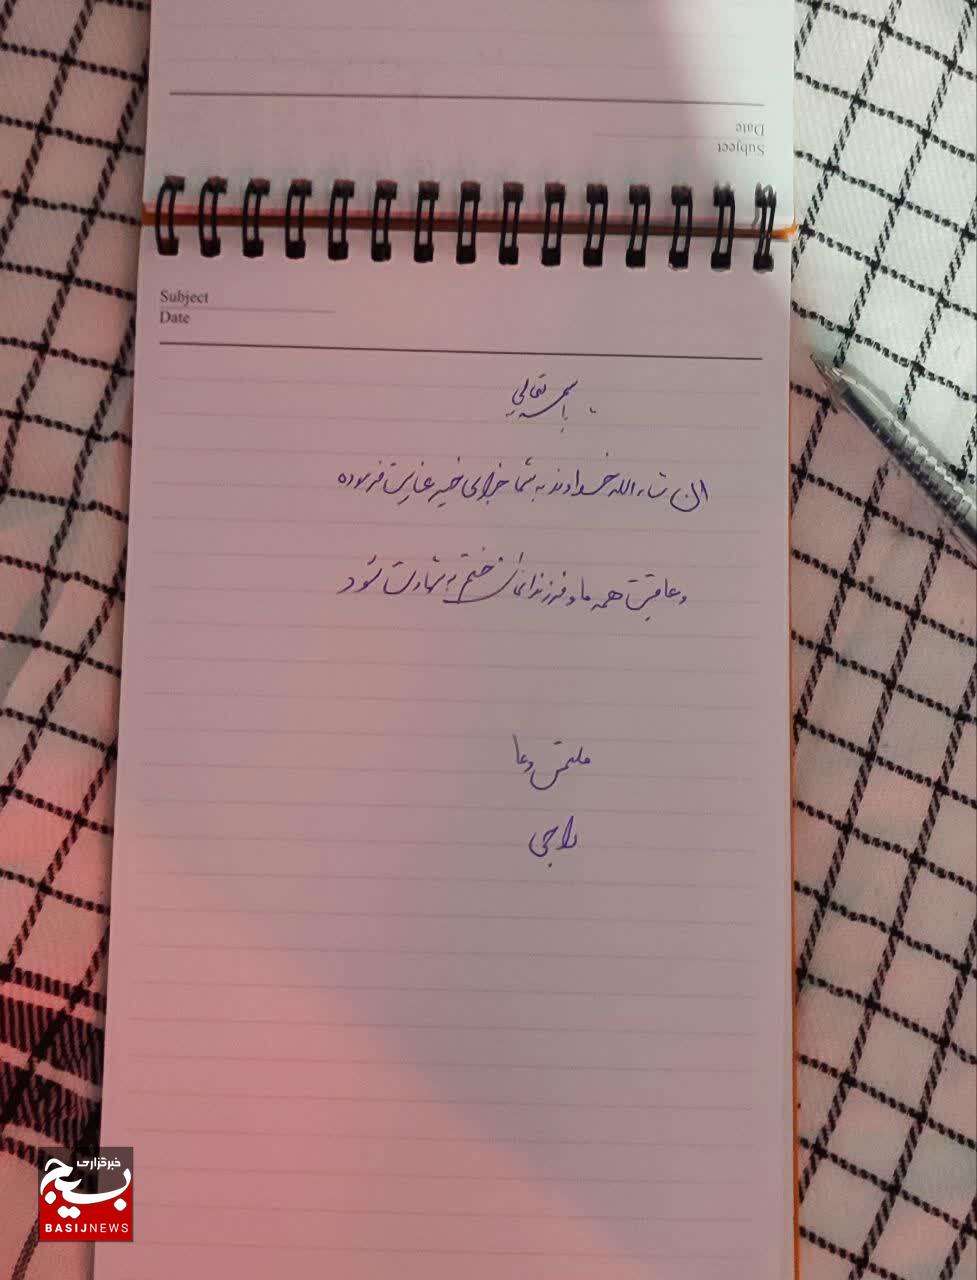 Date
Subject
Subject
Date
باسمه تعالی
ان شاء الله خداوند به شما جزای خیر عنایت فرموده
و عاقبت همه ما و فرزندانمان ختم به شهادت شود
ملتمس دعا
راجی
خبرگزاری
بسیج
BASIJNEWS